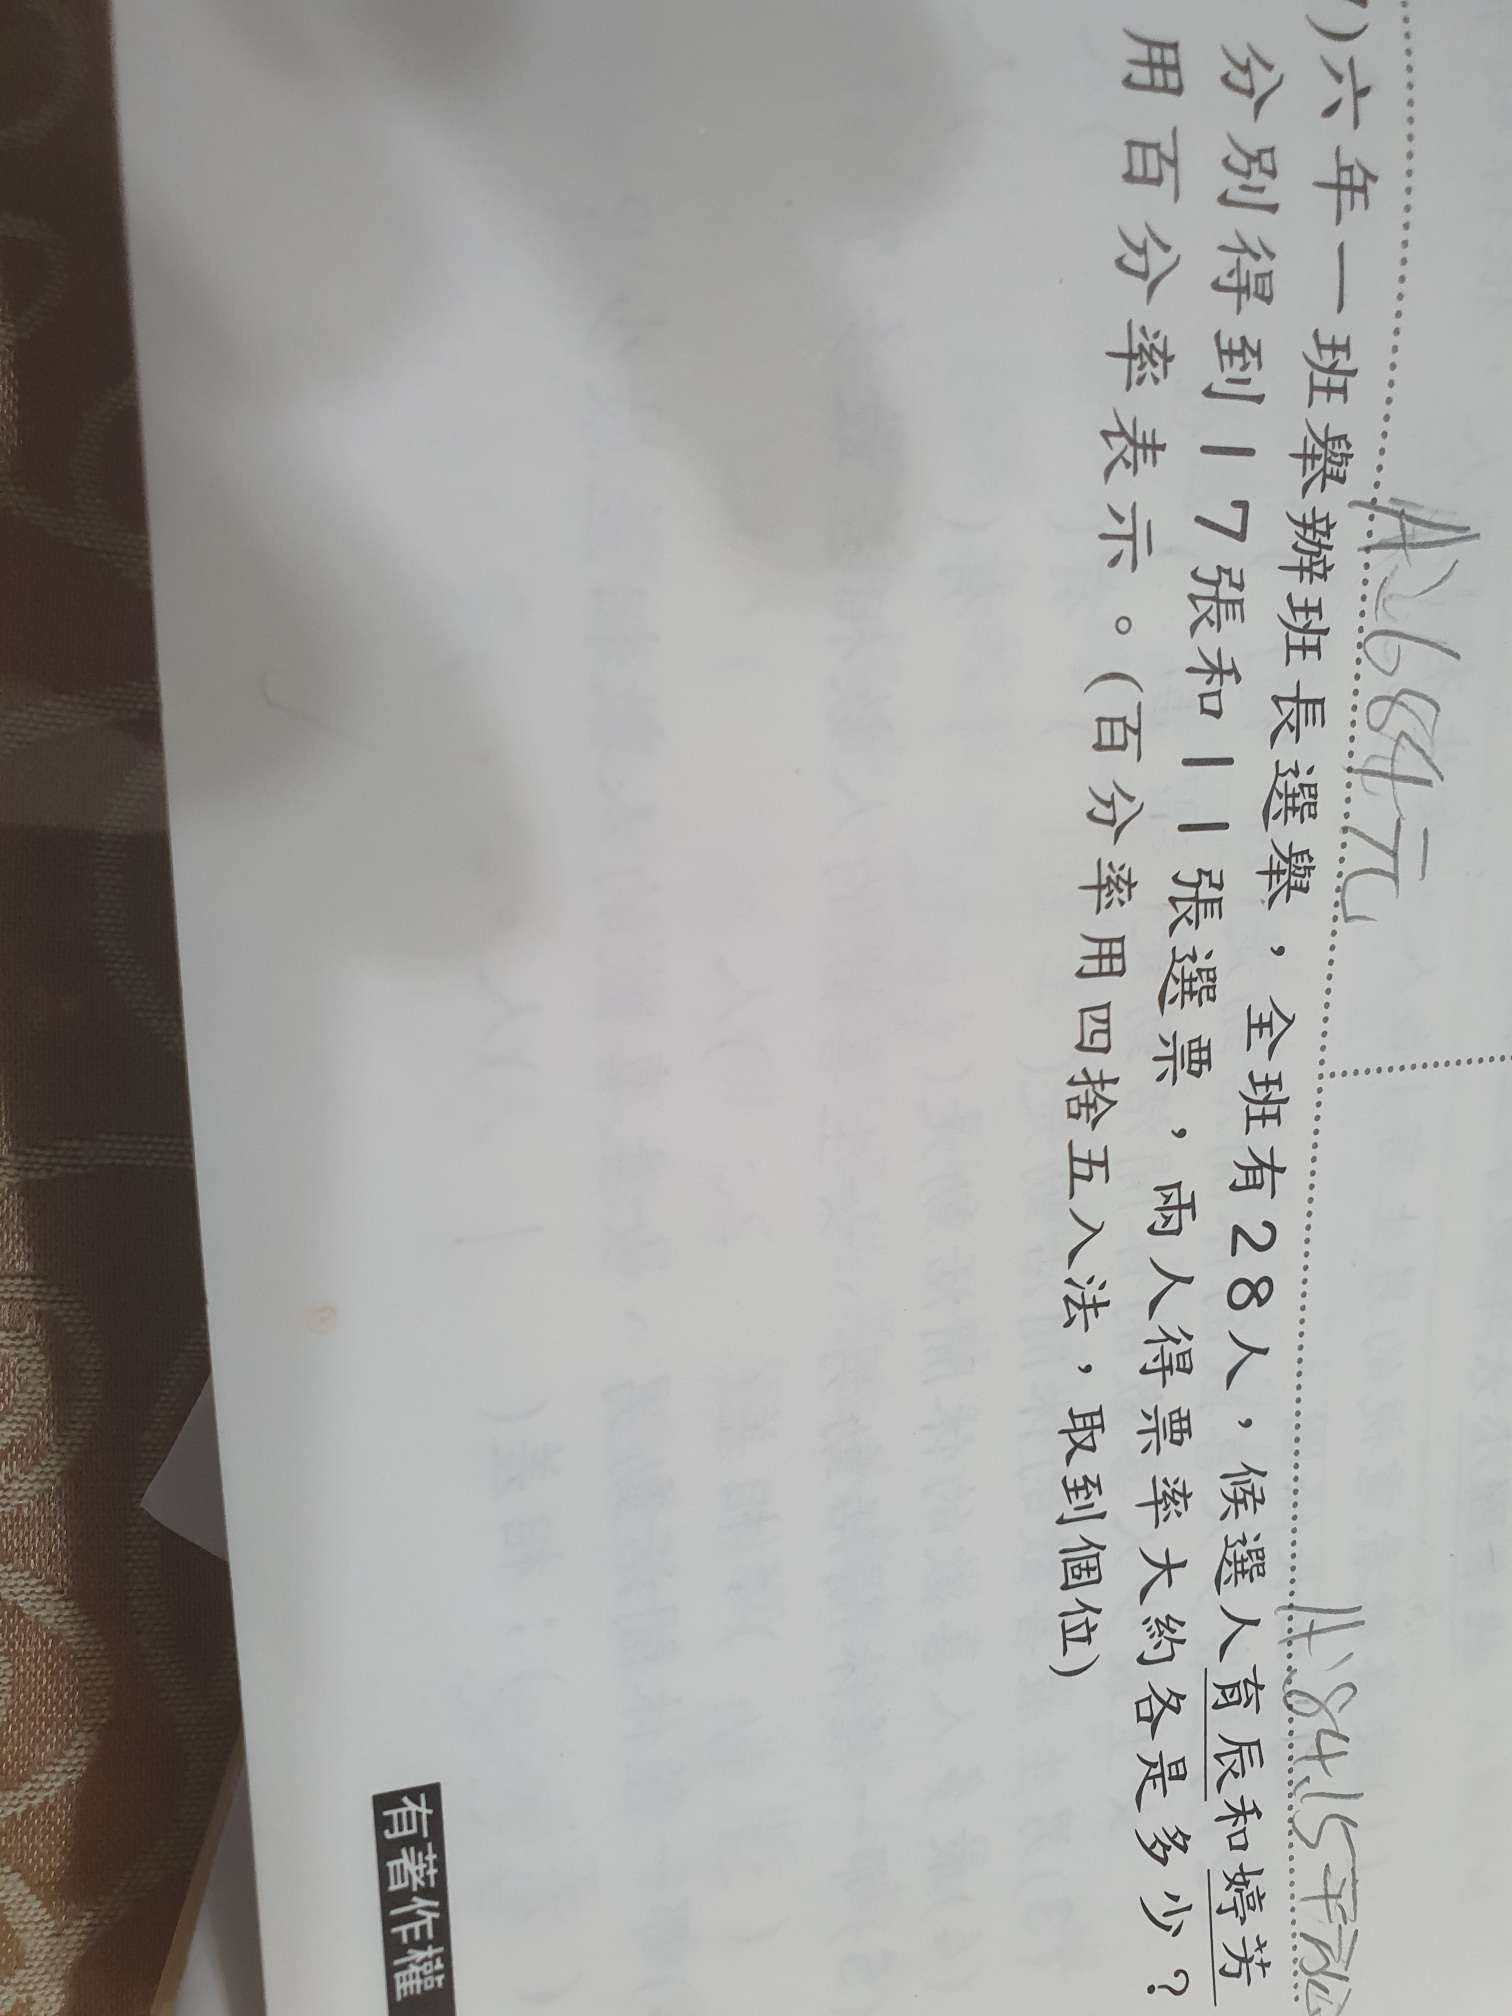 )六年一班舉辦班長選舉，全班有28人，候選人育辰和婷芳
分別得到17張和11張選票，兩人得票率大約各是多少？
用百分率表示。(百分率用四捨五入法，取到個位)
A：684元
A：84.15平方
有著作權